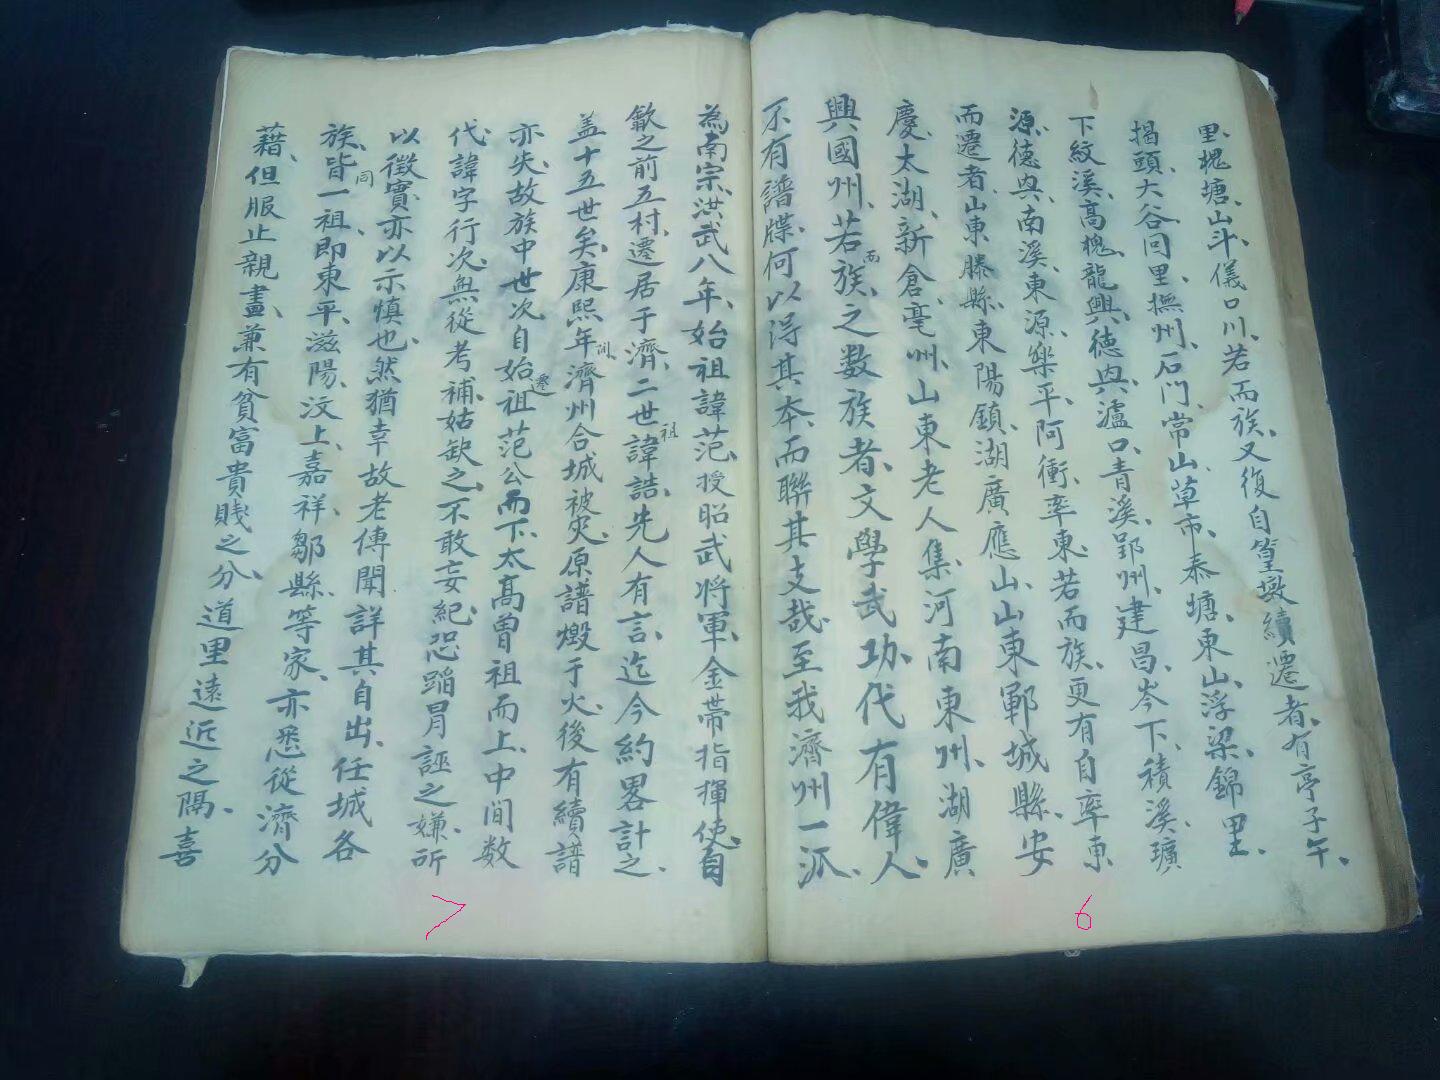 里、槐塘、山斗、儀口川、若而族、又復自篁墩續遷者、有亭子午、
揭頭、大谷同里、撫州、石門、常山草市、泰塘、東山、浮梁、錦里、
下紋溪、高槐、龍興、德興、瀘口、青溪、郢州、建昌、岑下、積溪、璜
源、德興、南溪、東源、樂平、阿衝、率東、若而族、更有自率東
而遷者、山東滕縣、東陽鎮、湖廣應山、山東鄆城縣、安
慶、太湖、新倉、亳州、山東老人集、河南東州、湖廣
興國州、若而族、之数族者、文學武功、代有偉人、
不有譜牒、何以得其本、而聯其支哉、至我濟州一派、
為南宗、洪武八年、始祖諱范、授昭武将軍、金帶指揮使、自
歙之前五村、遷居于濟、二世祖諱誥、先人有言、迄今約畧計之、
盖十五世矣、康熙年间、濟州合城被灾、原譜燬于火、後有續譜
亦失、故族中世次自始遷祖范公而下、太高曾祖而上、中间数
代、諱字行次、無從考補、姑缺之、不敢妄紀、恐蹈冐誣之嫌、所
以徵實、亦以示慎也、然猶幸故老傳聞、詳其自出、任城各
族、皆同一祖、即東平、滋陽、汶上、嘉祥、鄒縣等家、亦悉從濟分
藉、但服止親盡、兼有貧富貴賤之分、道里遠近之隔、喜
7
6